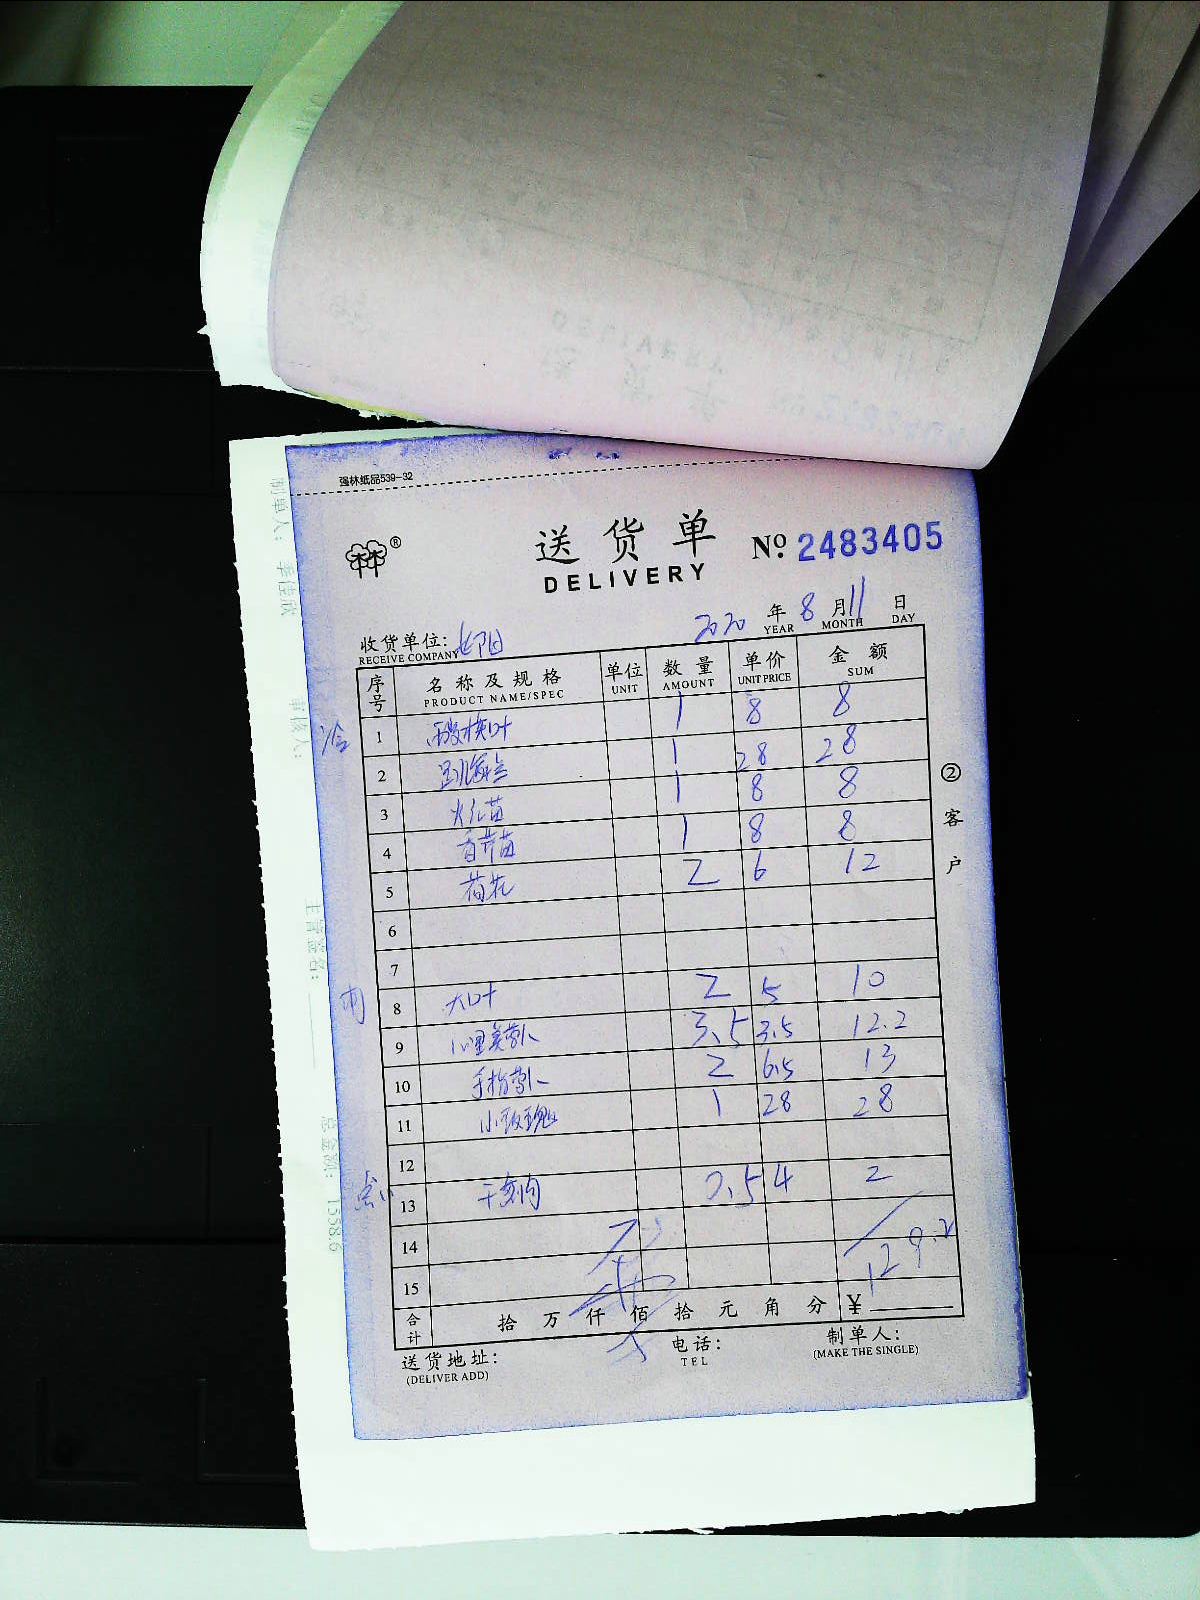 强林纸品539-32
送货单
DELIVERY
№ 2483405
2020 年 8 月 11 日
YEAR MONTH DAY
收货单位:
RECEIVE COMPANY
序号 名称及规格 单位 数量 单价 金额
PRODUCT NAME/SPEC UNIT AMOUNT UNIT PRICE SUM
冷 1 1 8 8
2 1 28 28
3 火红苗 1 8 8
4 香芹苗 1 8 8
5 荷花 2 6 12
6
7
肉 8 大叶 2 5 10
9 心里美萝卜 3.5 3.5 12.2
10 手指萝卜 2 6.5 13
11 小玫瑰 1 28 28
12
13 0.5 4 2
14
15 129.2
合计 拾 万 仟 佰 拾 元 角 分 ¥
送货地址: 电话: 制单人:
(DELIVER ADD) TEL (MAKE THE SINGLE)
② 客户
制单人: 李佳欣
审核人:
主管签名:
总金额: 1558.6